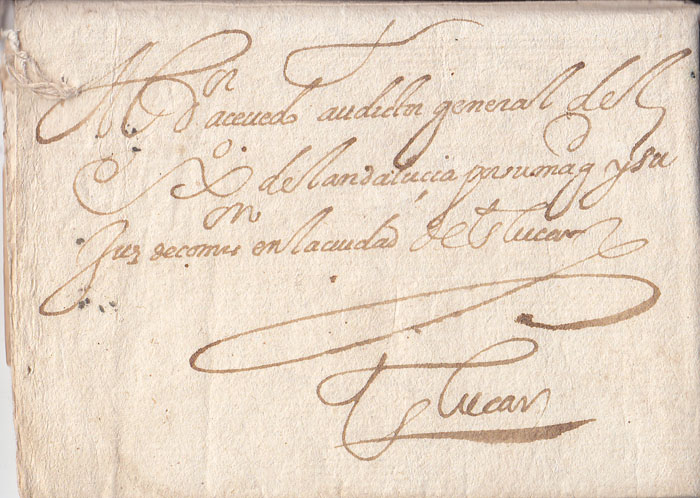 A D.n acevedo audictor general del
Ex.to del andalucia por su mag.d y su
Juez de comi.on en la ciudad de S Lucar
S Lucar